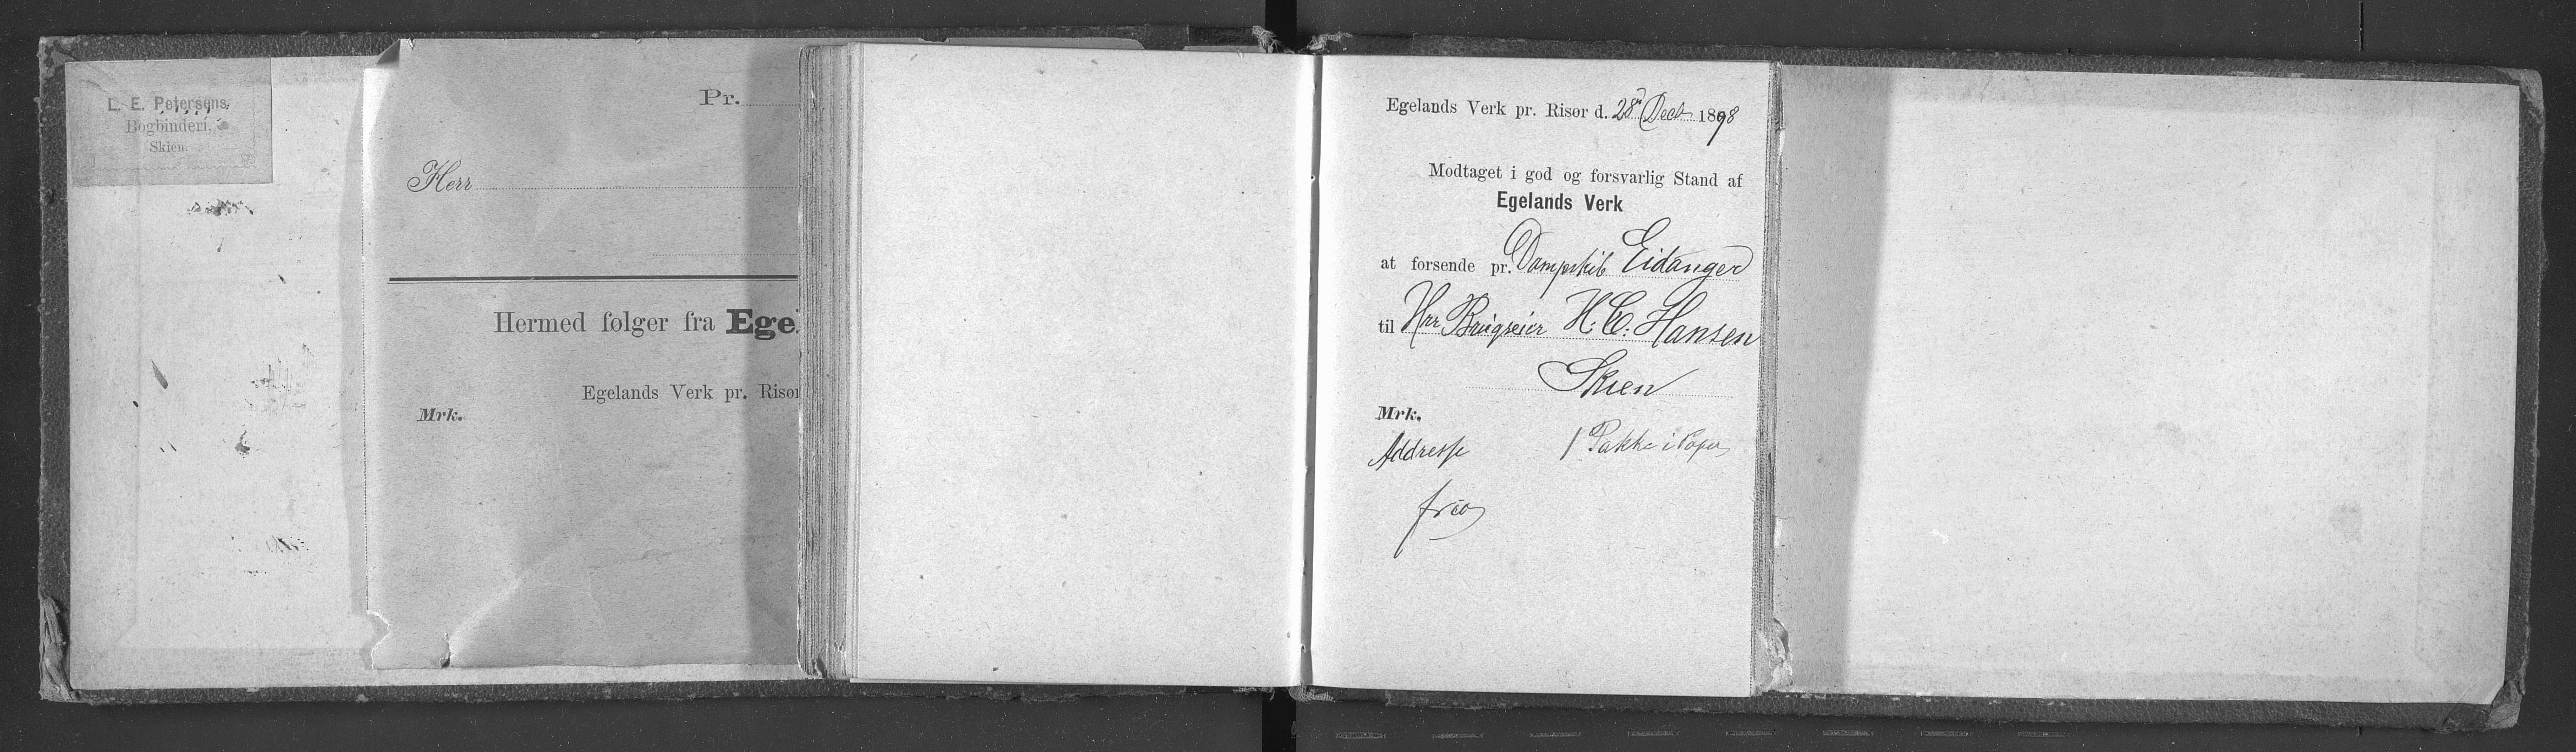 L. E. Petersens
Bogbinderi.
Skien.
Pr.
Herr
Hermed følger fra Ege
Egelands Verk pr. Risør
Mrk.
Egelands Verk pr. Risør d. 28 Decb 1898
Modtaget i god og forsvarlig Stand af
Egelands Verk
at forsende pr. Dampskib Eidanger
til Hrr Brugseier H. C. Hansen
Skien
Mrk.
Addresse 1 Pakke i Papir